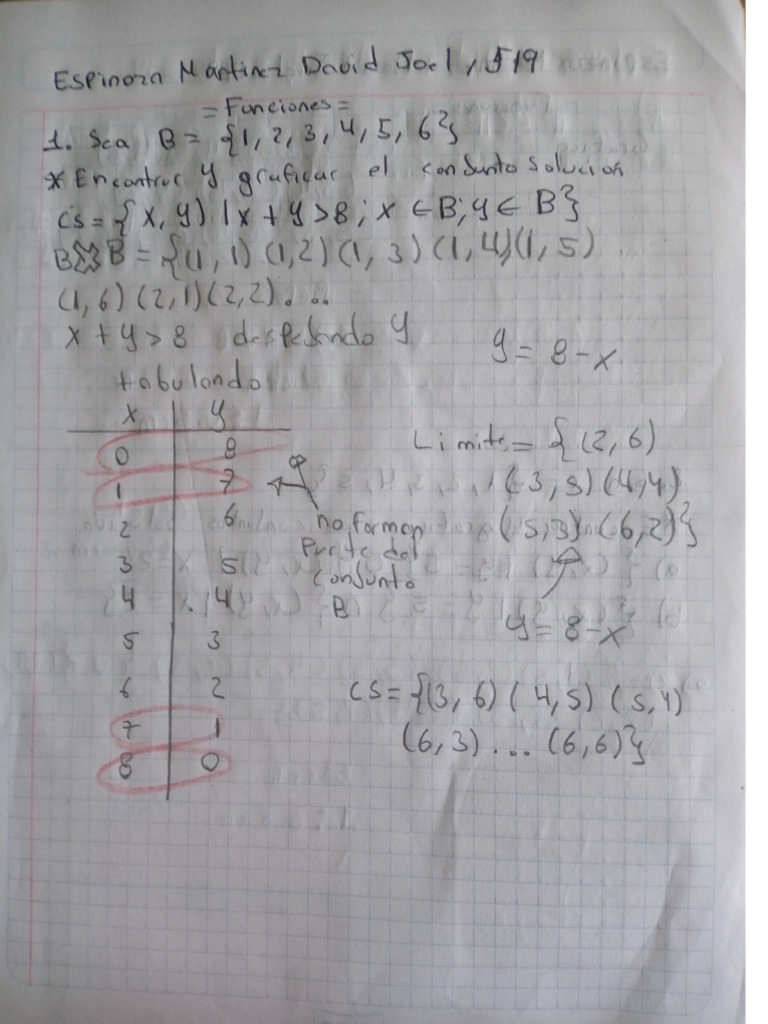 Espinoza Martinez David Joel, 519
= Funciones =
1. Sea B = {1, 2, 3, 4, 5, 6}
* Encontrar y graficar el conjunto solucion
CS = { x, y) | x + y > 8 ; x ∈ B; y ∈ B}
B x B = {(1, 1) (1,2) (1, 3) (1, 4) (1, 5)
(1, 6) (2,1) (2,2)...
x + y > 8 despejando y
y = 8 - x
tabulando
x y
0 8
1 7
2 6
3 5
4 4
5 3
6 2
7 1
8 0
no forman
parte del
conjunto
B
Limite = { (2, 6)
(3, 5) (4,4)
(5,3) (6,2)}
y = 8 - x
CS = {(3, 6) (4, 5) (5,4)
(6, 3) ... (6, 6)}